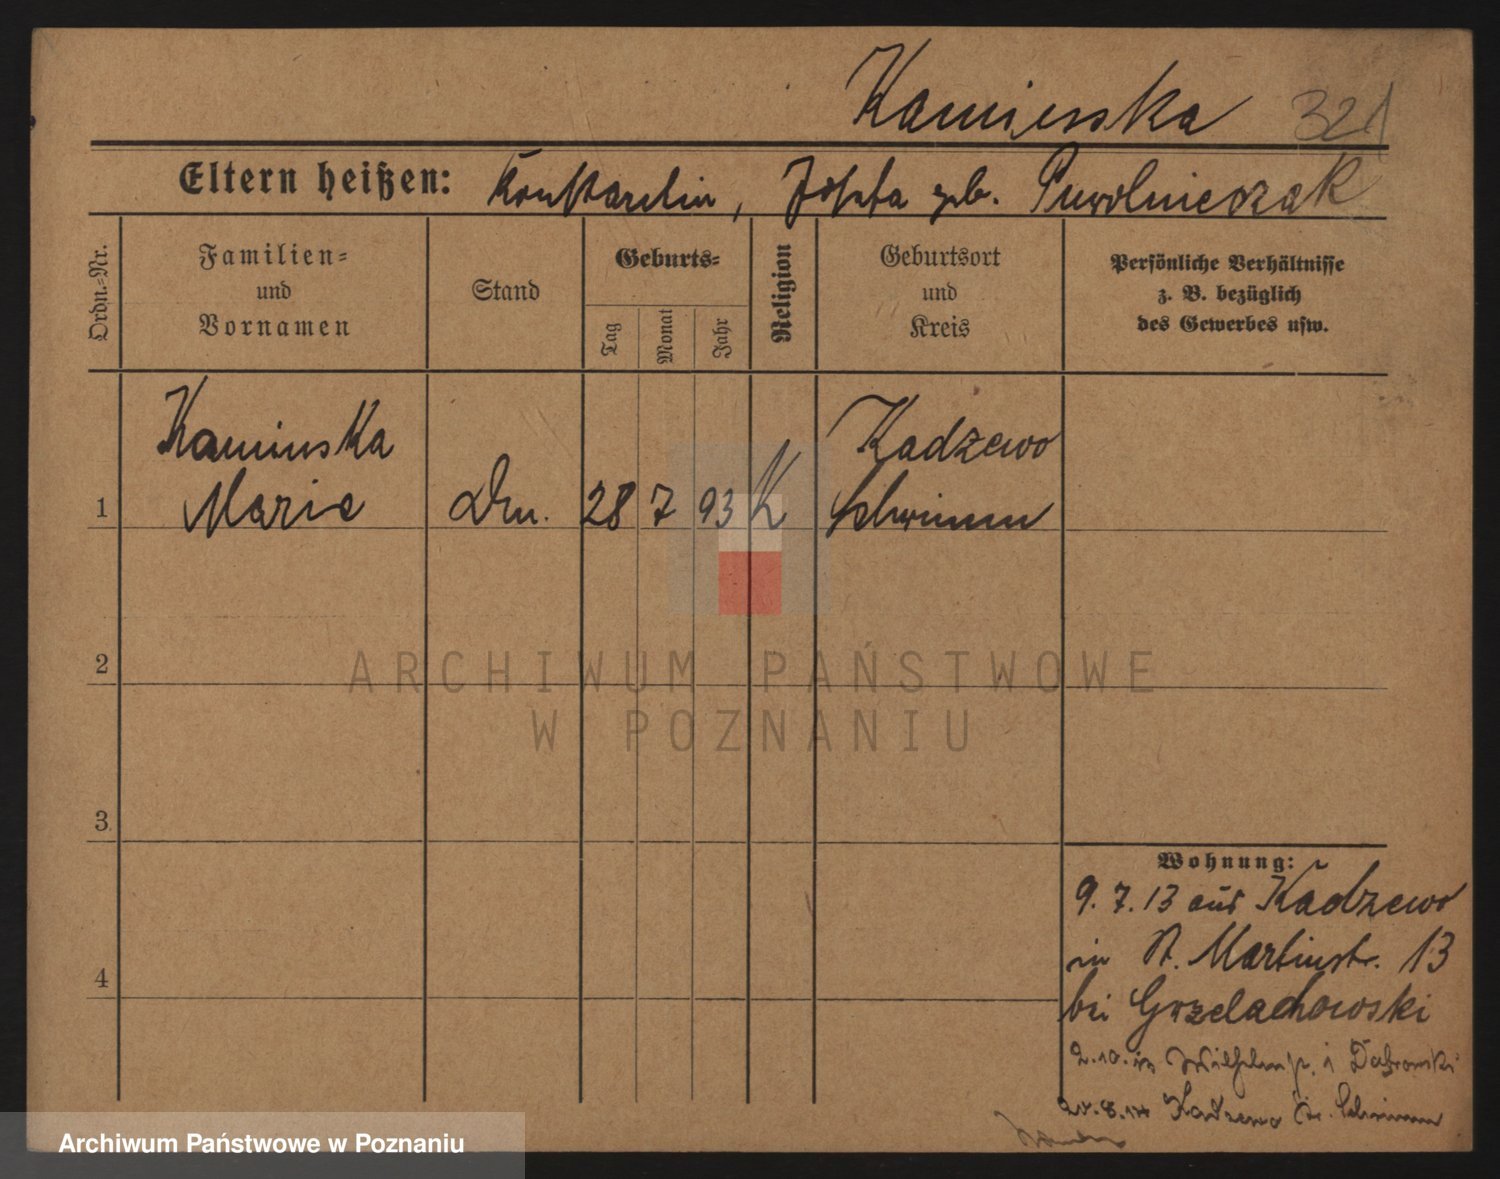 Kamienska 321
Eltern heißen: Konstantin, Josefa geb. Puwolnieczak
Ordn.-Nr.
Familien-
und
Vornamen
Stand
Geburts-
Tag
Monat
Jahr
Religion
Geburtsort
und
Kreis
Persönliche Verhältnisse
z. B. bezüglich
des Gewerbes usw.
Kaminska Kadzewo
1 Marie Dm. 28 7 93 K Schrimm
2
ARCHIWUM PAŃSTWOWE
W POZNANIU
3
Wohnung:
9. 7. 13 aus Kadzewo
in St. Martinstr. 13
4
bei Grzelachowski
2.10. Wilhelmstr. 1 Dabrowski
8.14 Kadzewo Kr. Schrimm
Archiwum Państwowe w Poznaniu